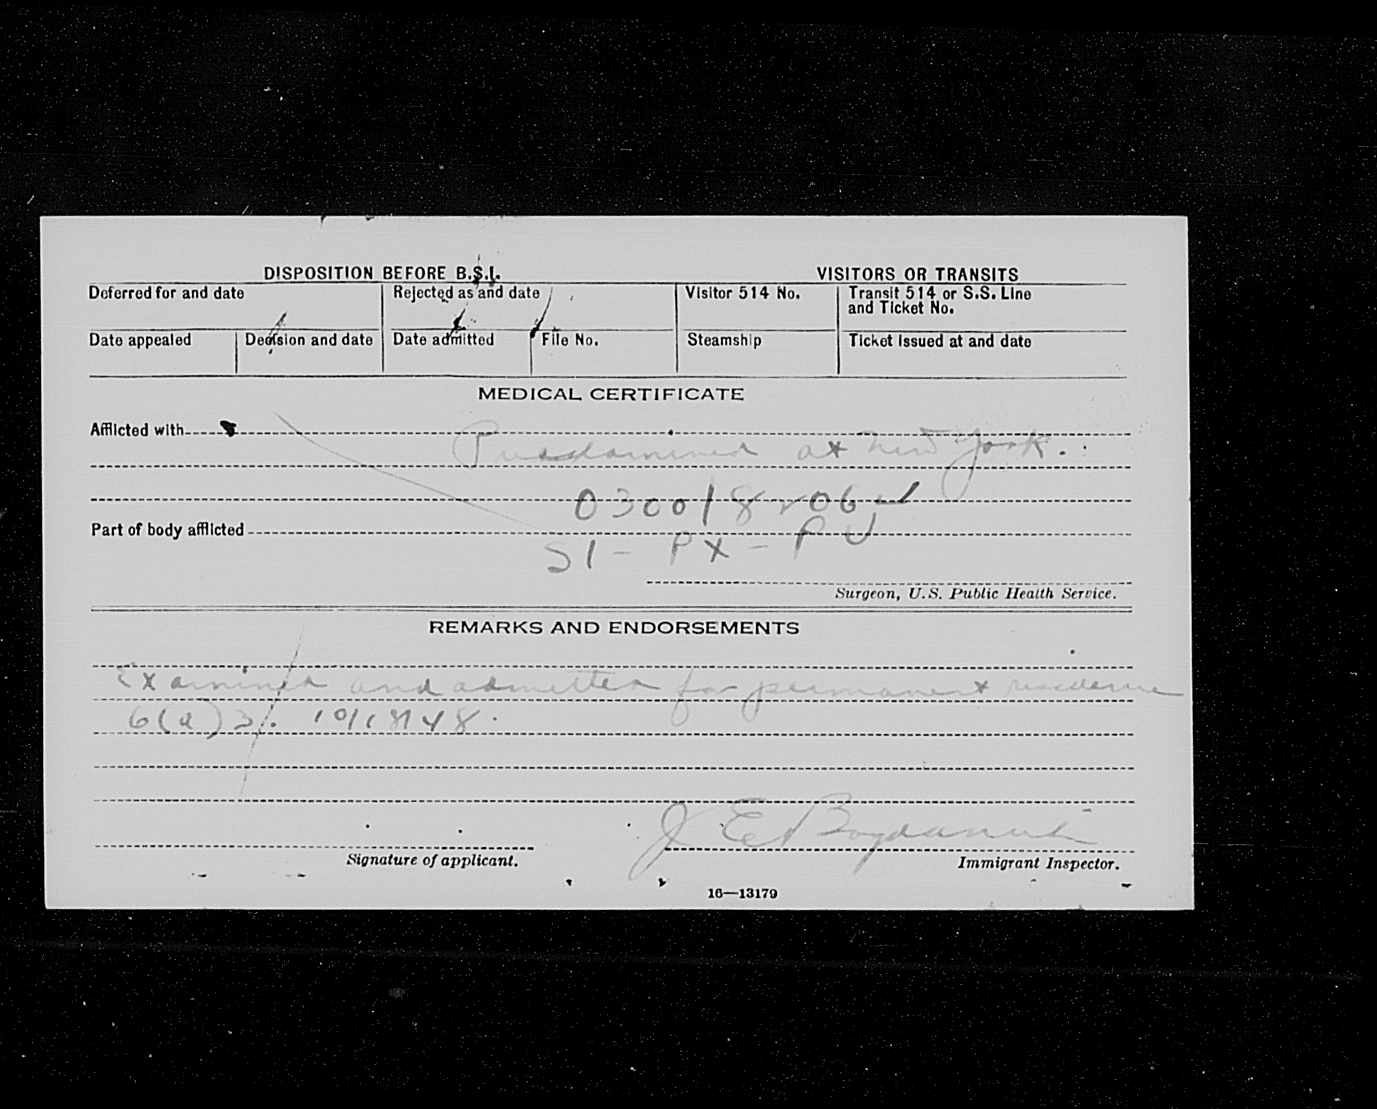 DISPOSITION BEFORE B.S.I.
VISITORS OR TRANSITS
Deferred for and date
Rejected as and date
Visitor 514 No.
Transit 514 or S.S. Line
and Ticket No.
Date appealed
Decision and date
Date admitted
File No.
Steamship
Ticket issued at and date
MEDICAL CERTIFICATE
Afflicted with
at New York.
Part of body afflicted
S1 - PX - PU
Surgeon, U.S. Public Health Service.
REMARKS AND ENDORSEMENTS
Examined and admitted for permanent residence
Signature of applicant.
J E Bogdanuk
Immigrant Inspector.
16—13179